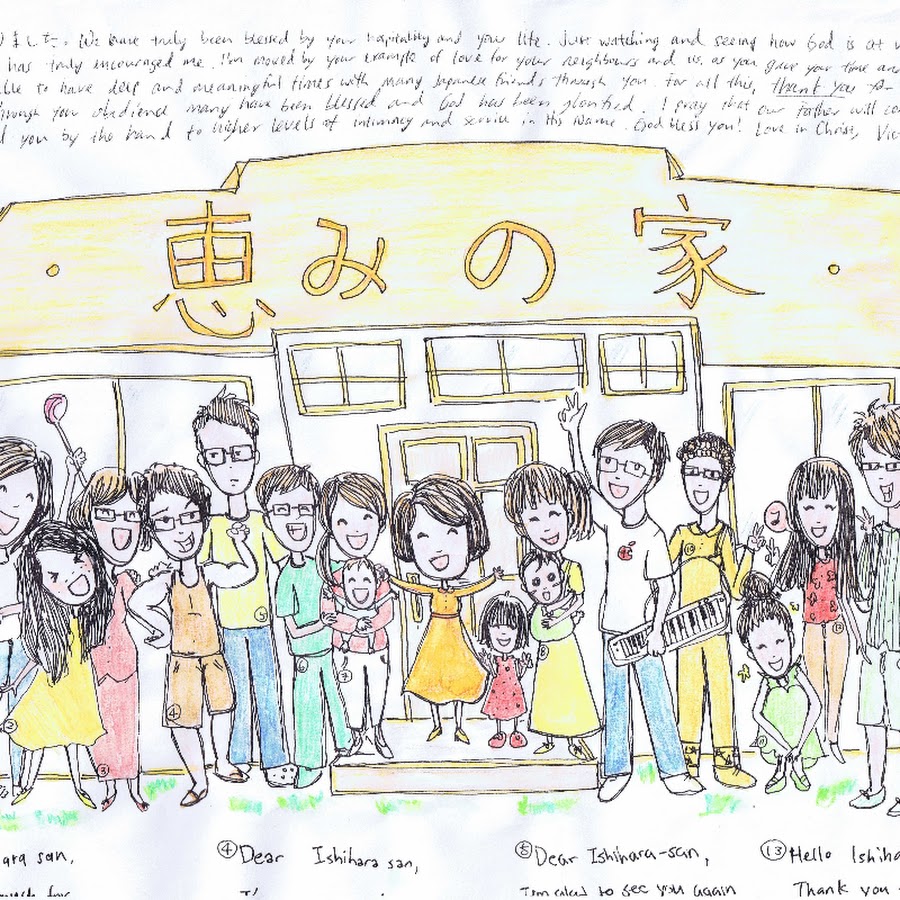 りました. We have truly been blessed by your hospitality and your life. Just watching and seeing how God is at
has truly encouraged me. I'm moved by your example of love for your neighbours and us as you gave your time and
able to have deep and meaningful times with many Japanese friends through you. For all this, Thank you
through your obedience many have been blessed and God has been glorified. I pray that our Father will
you by the hand to higher levels of intimacy and service in His Name. God bless you! Love in Christ,
恵みの家
2
3
4
5
6
7
8
san,
④ Dear Ishihara san,
⑤ Dear Ishihara-san,
I'm glad to see you again
⑬ Hello
Thank you